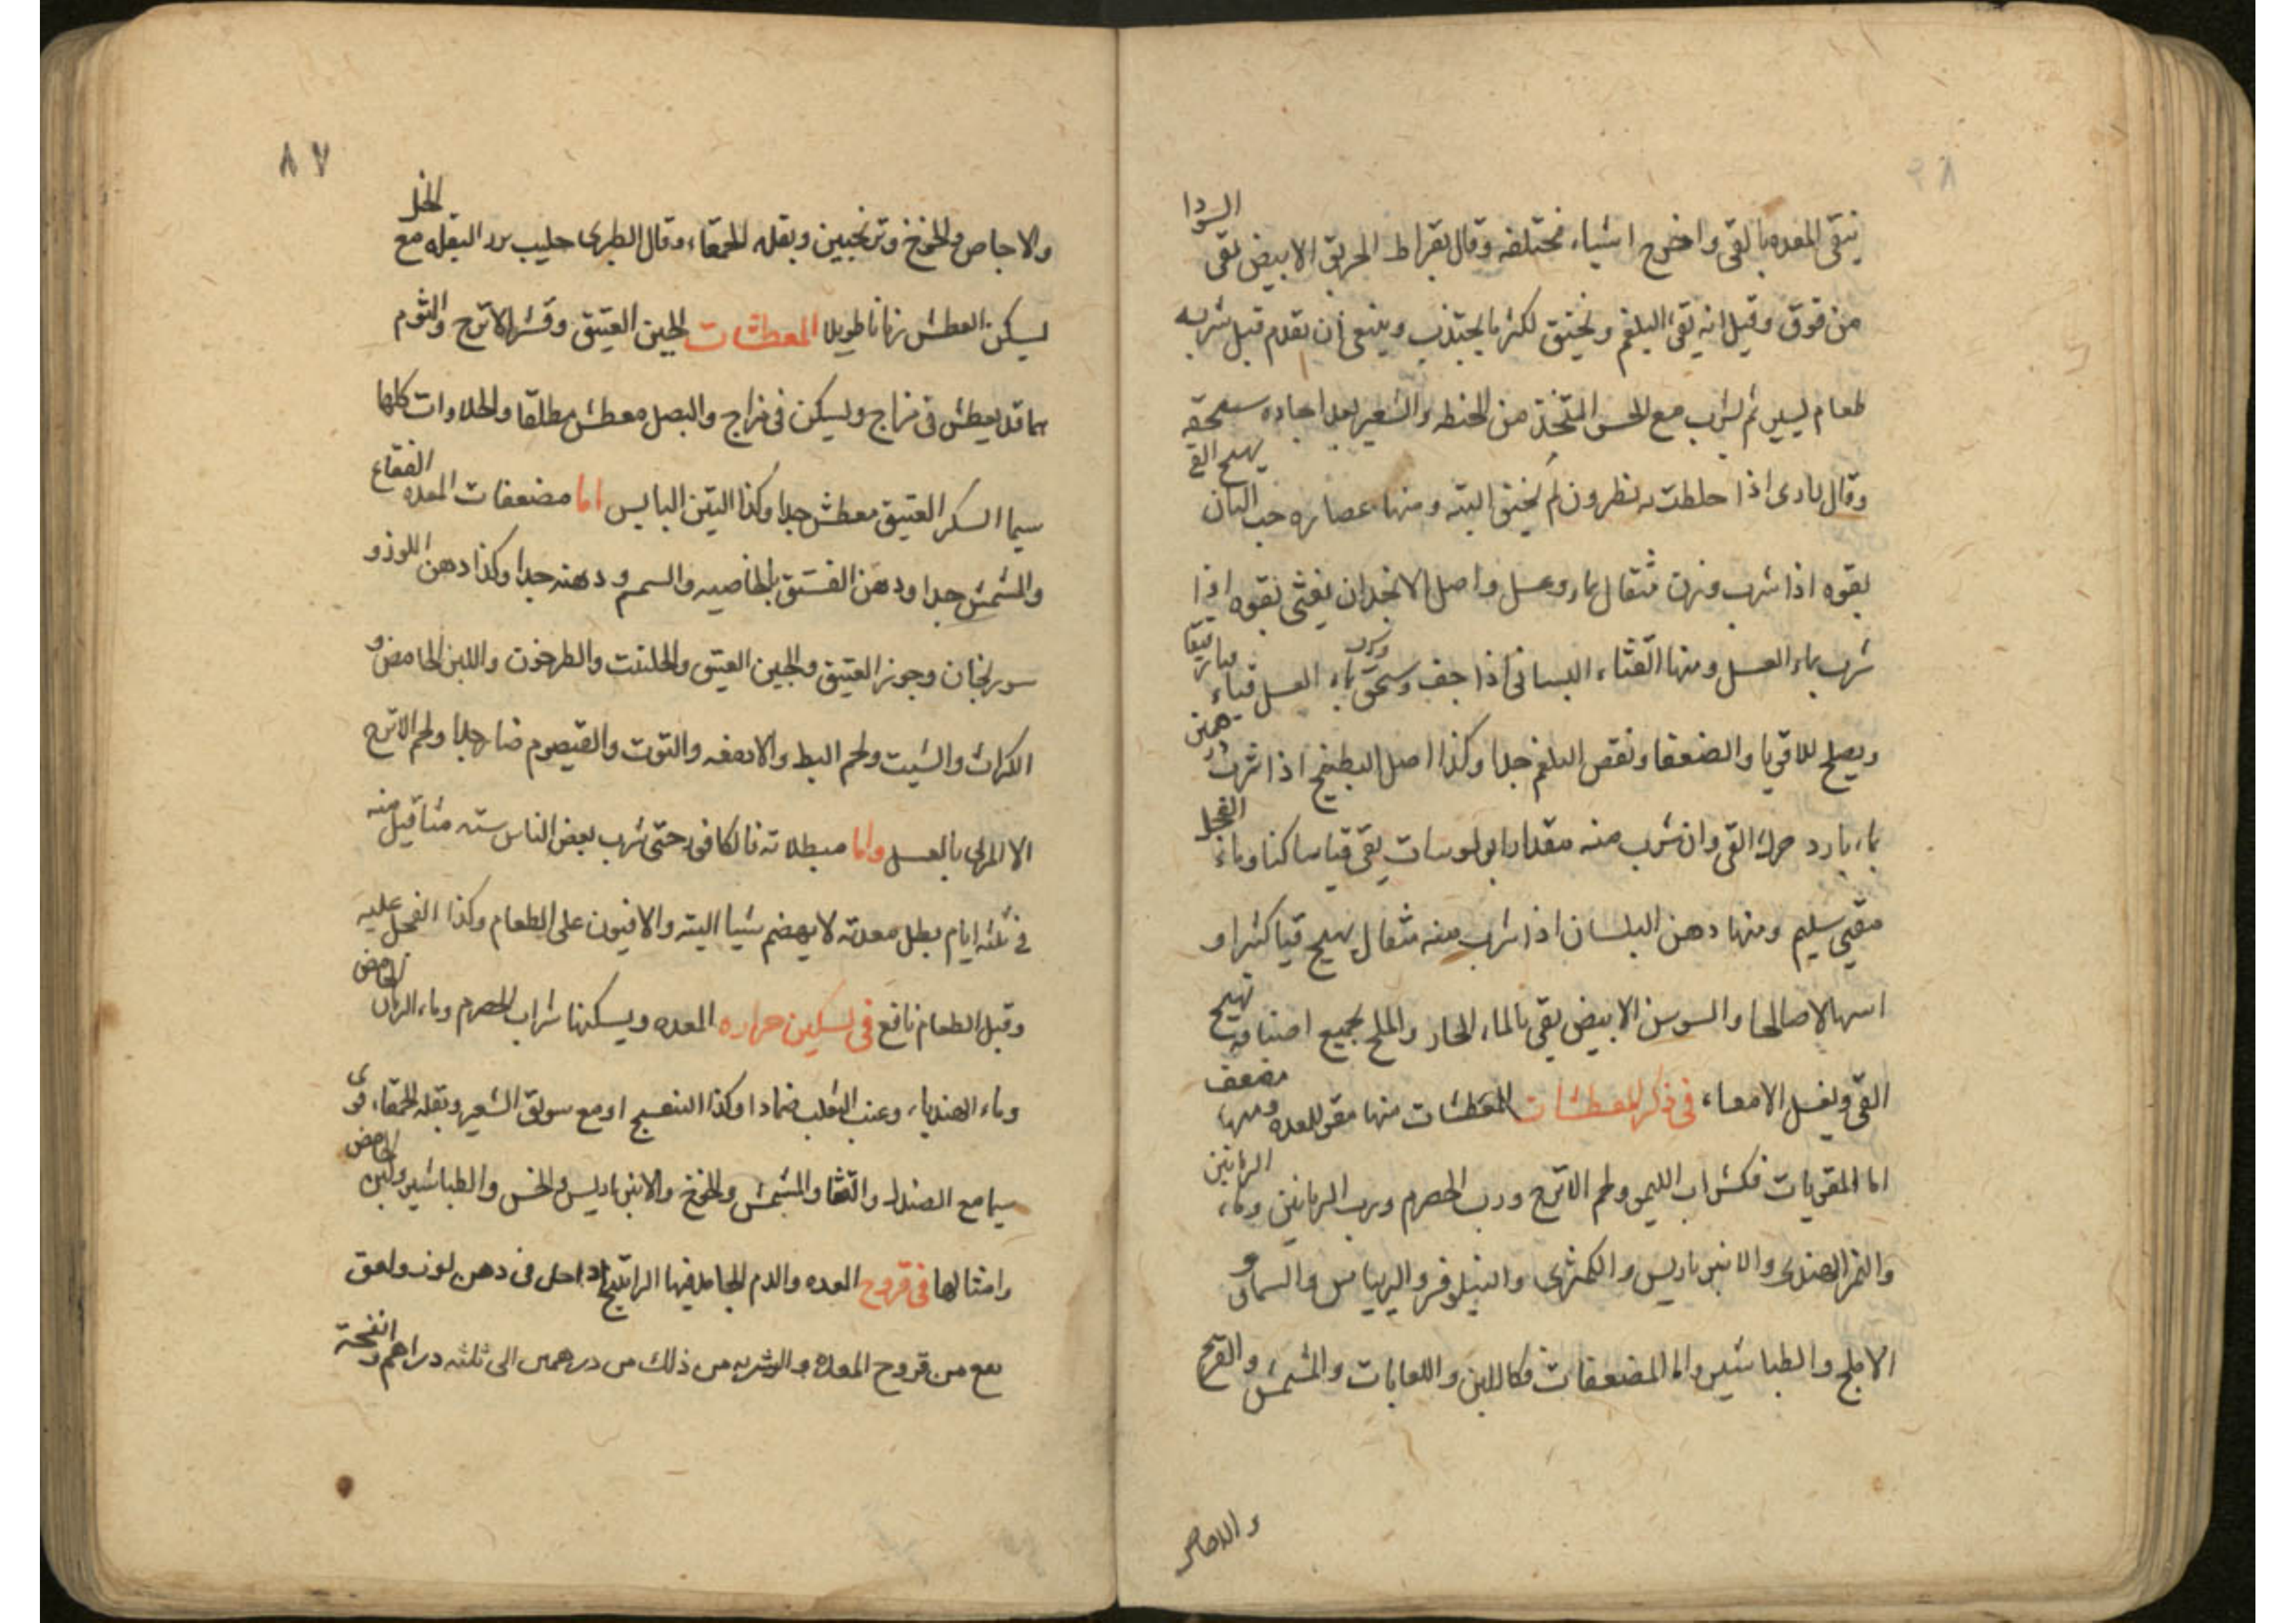 ينقى المعده بالقى واخرج اشياء مختلفه وقال بقراط الخربق الابيض يقى السودا
من فوق وقيل انه يقى البلغم ويخنق لكثره ما يجتذب وينبغى ان يقدم قبل شربه
طعام يسير ثم يشرب مع الحسو المتخذ من الحنطه والشعير بعد اجاده سحقه
وقال اذا خلطت به نطرون لم يخنق البته ومنها عصاره حب البان يهيج القى
بقوه اذا شرب منه مثقال بماء وعسل واصل الانجدان يغثى بقوه اذا
شرب بماء العسل ومنها القثاء البستانى اذا جف وسحق وشرب بماء العسل قياء
ويصلح للاقويا والضعفا وينقص البلغم جدا وكذا اصل البطيخ اذا شرب درهمين
بماء بارد حرك القى وان شرب منه مقدار ابولوسات يقى قيا ساكنا وماء الفجل
مقيى سليم ومنها دهن البلسان اذا شرب منه مثقال يهيج قيا كثيرا و
اسهالا صالحا والسوسن الابيض يقى بالماء الحار والملح بجميع اصنافه تهيج
القى ويغسل الامعاء فى ذكر المعطشات المعطشات منها مقو للمعده ومنها مضعف
اما المقويات فكشراب الليمو ولحم الاترج ورب الحصرم ورب الرمانين وماء الرمانين
والتمر الهندى والانبرباريس والكمثرى والنيلوفر والريباس والسماق و
الاملج والطباشير واما المضعفات فكاللبن واللعابات والمشمش والقرع
والاجاص
٨٧
والاجاص والخوخ وترنجبين وبقله الحمقاء وقال الطبرى حليب بزر البقله مع الخل
يسكن العطش زمانا طويلا المعطشات الجبن العتيق وقشر الاترج والثوم
مما قد يعطش فى مزاج ويسكن فى مزاج والبصل معطش مطلقا والحلاوات كلها
سيما السكر العتيق معطش جدا وكذا التين اليابس اما مضعفات المعده الفقاع
والمشمش جدا ودهن الفستق بالخاصيه والسمسم ودهنه جدا وكذا دهن اللوز و
سورنجان وجوز العتيق والجبن العتيق والحلتيت والطرخون واللبن الحامض و
الكراث والشبت ولحم البط والادمغه والتوت والقيصوم ضار جدا ولحم الاترج
الا المربى بالعسل واما مبطلاته فالكافور حتى شرب بعض الناس سته مثاقيل منه
فى ثلثه ايام بطل معدته لا يهضم شيا البته والافيون على الطعام وكذا الفجل عليه
وقبل الطعام نافع فى تسكين حراره المعده ويسكنها شراب الحصرم وماء الرمان الحامض
وماء الهندباء وعنب الثعلب ضمادا وكذا البنفسج او مع سويق الشعير وبقله الحمقاء قوى
سيما مع الصندل والقثا والمشمش والخوخ والانبرباريس والخس والطباشير ولبن الحامض
وامثالها فى قروح المعده والدم الجامد فيها الراتينج اذا حل فى دهن لوز ولعق
نفع من قروح المعده والشربه من ذلك من درهمين الى ثلثه دراهم وانفحة